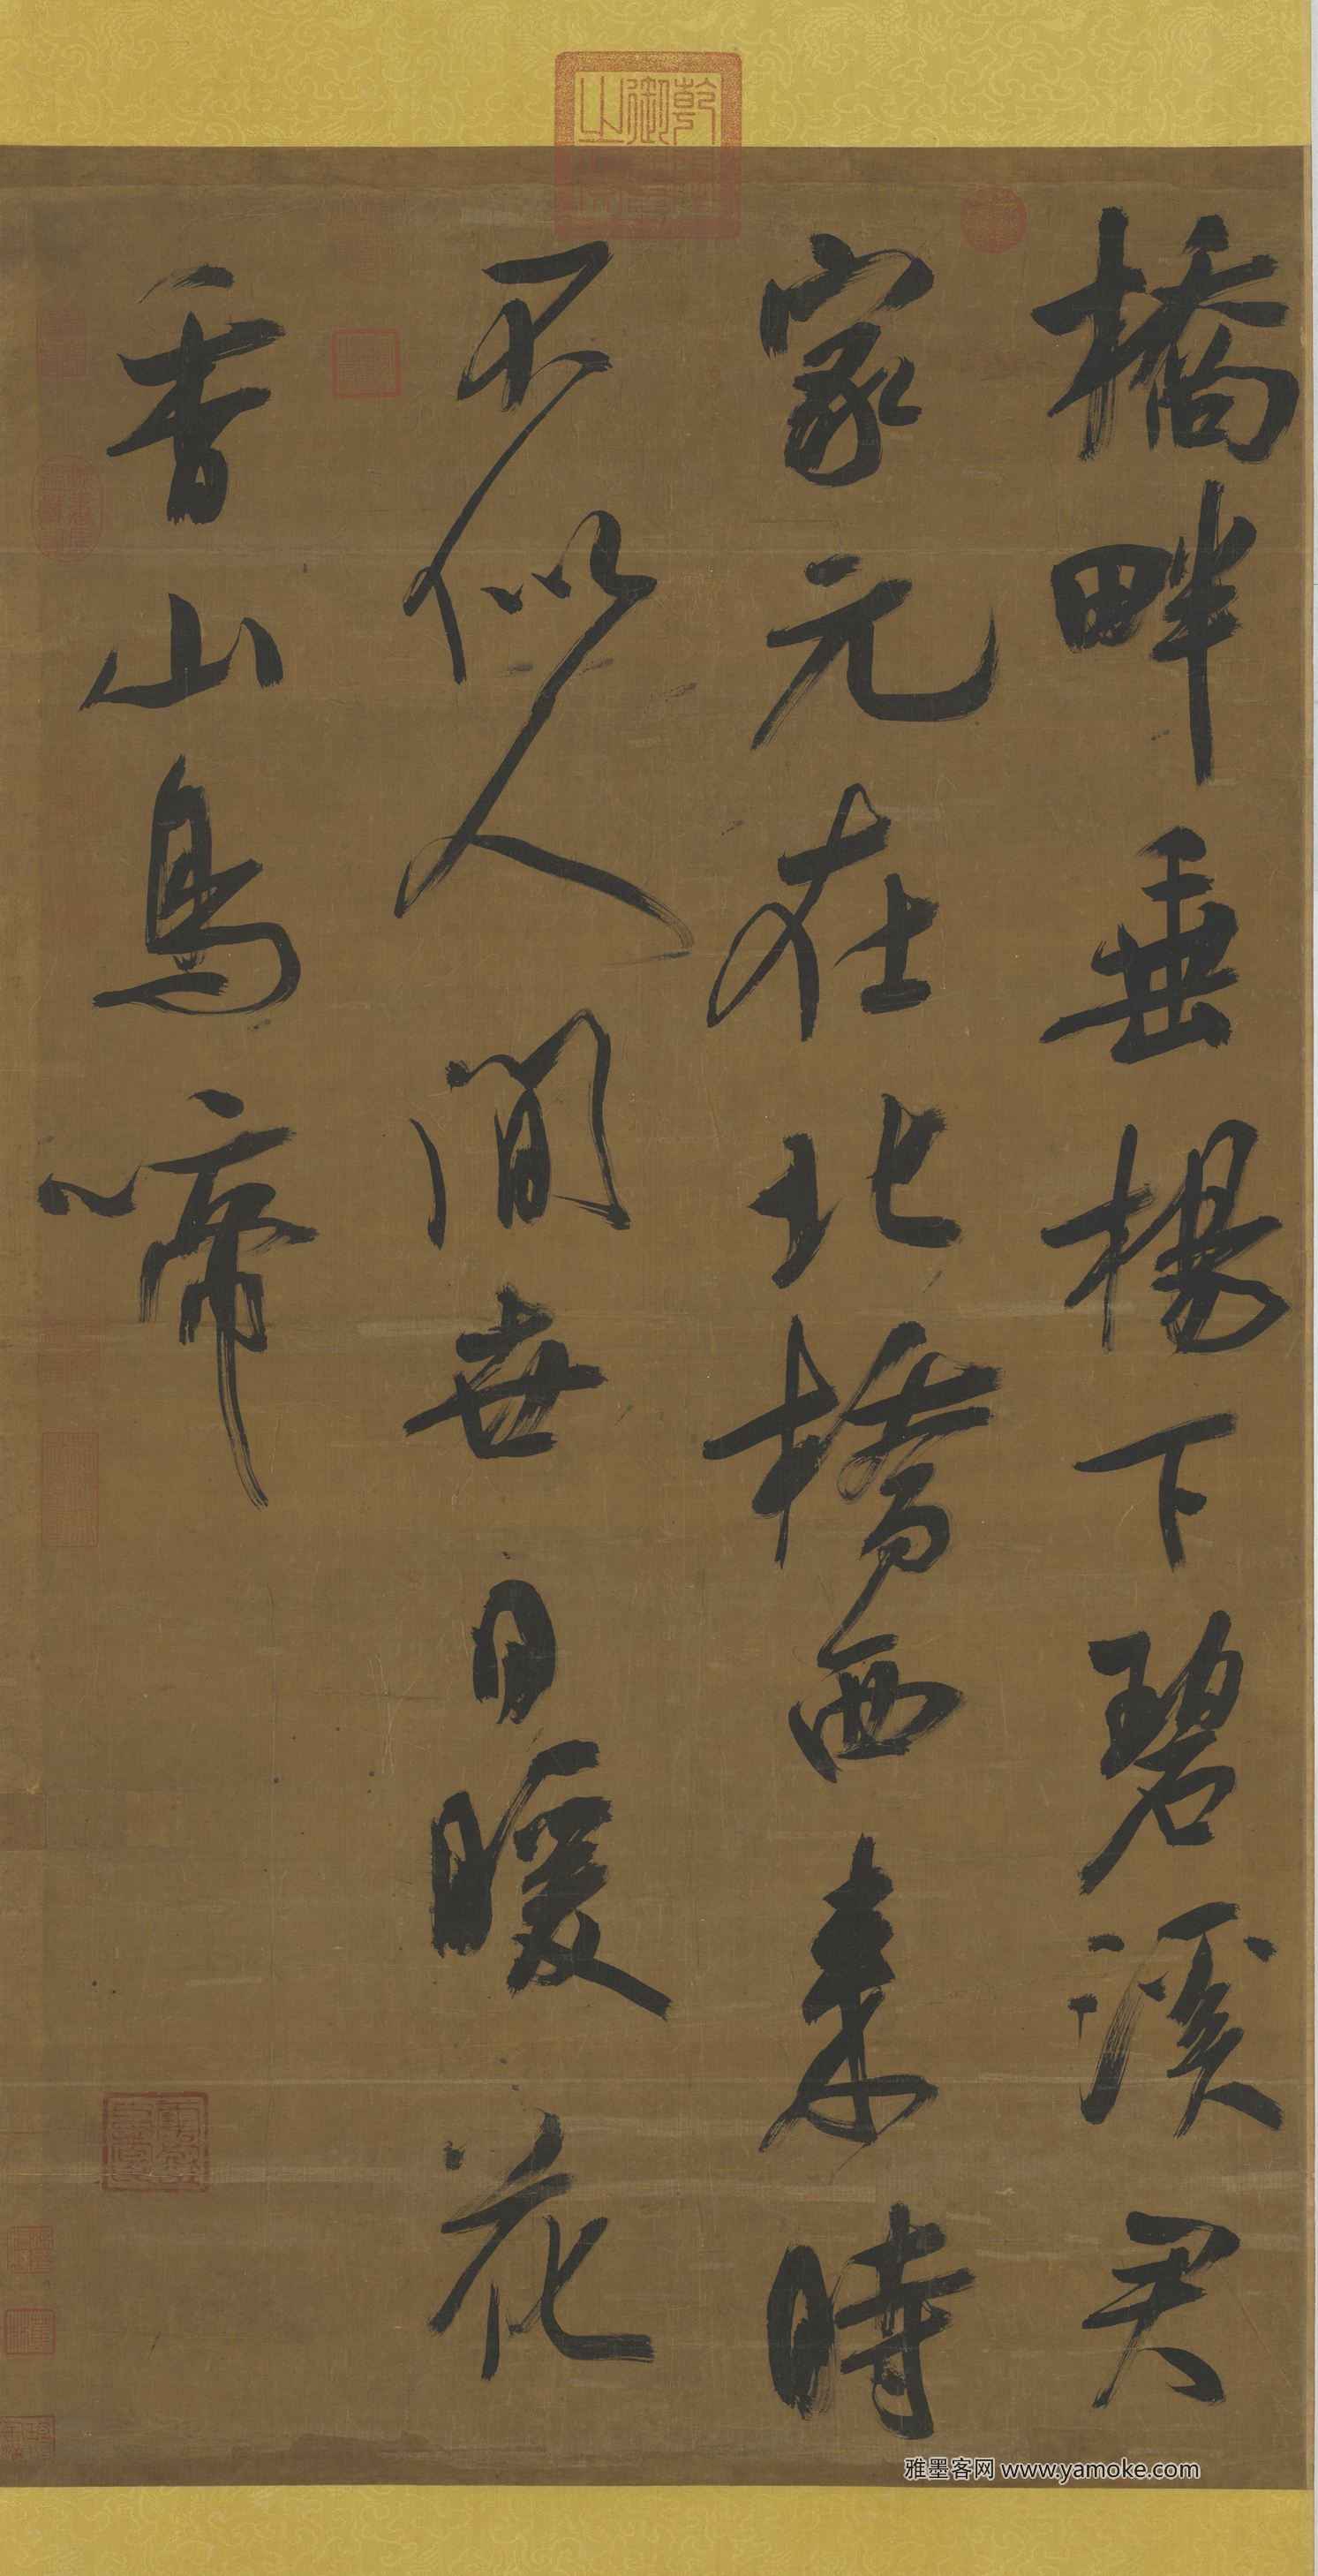 橋畔垂楊下碧溪君
家元在北橋西来時
不似人間世日暖花
香山鳥啼
雅墨客网 www.yamoke.com